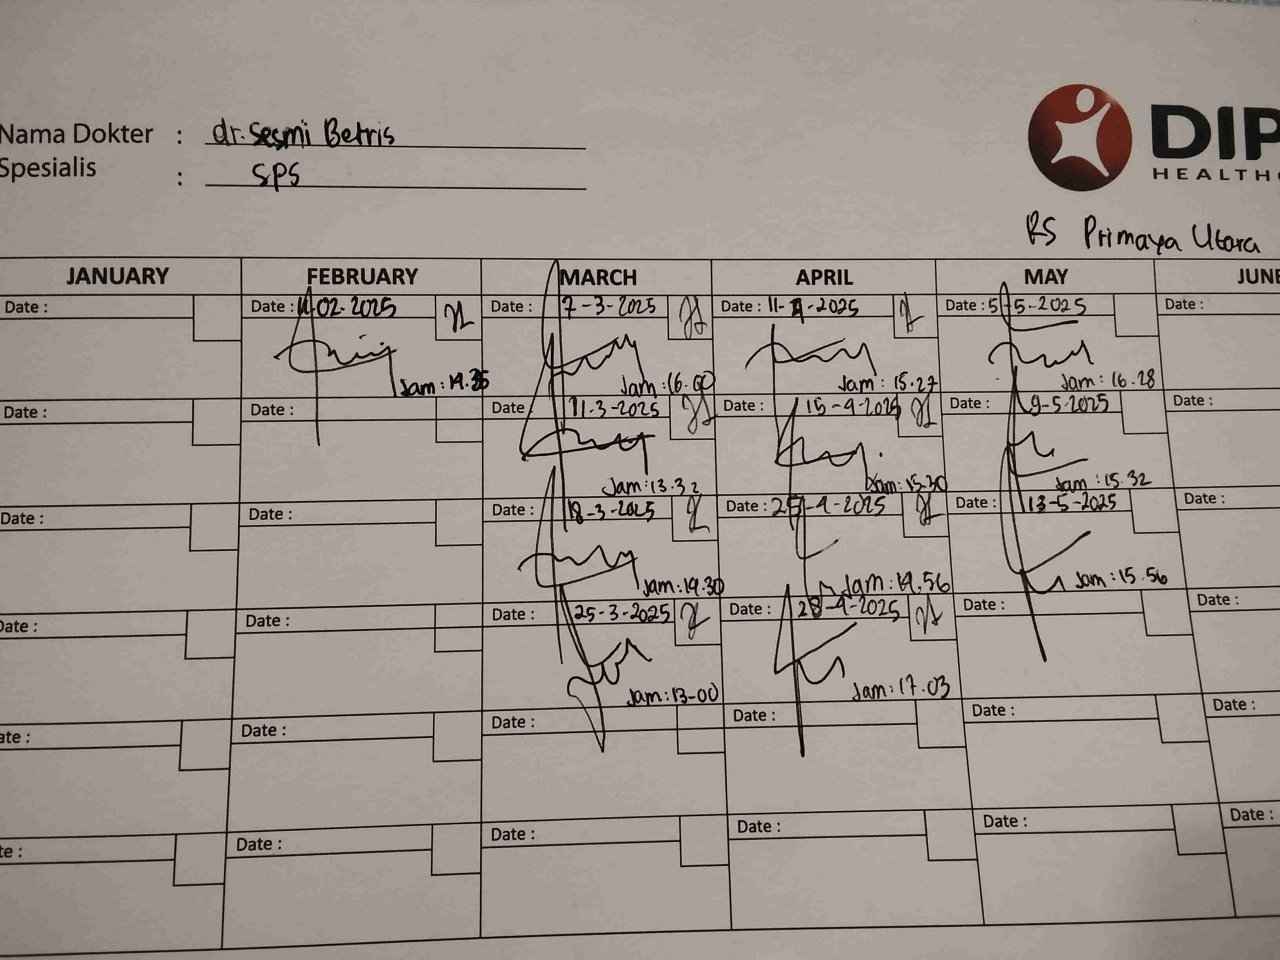 Nama Dokter : dr. Sesmi Betris
Spesialis : SPS
DIP
HEALTHC
RS Primaya Utara
JANUARY FEBRUARY MARCH APRIL MAY JUNE
Date : Date : 11-02-2025 Date : 7-3-2025 Date : 11-4-2025 Date : 5-5-2025
Jam: 16.00 Jam: 15.27 Jam: 16.28
Date : Date : Date 11-3-2025 Date : 15-4-2025 Date : 9-5-2025 Date :
Jam: 13.32 Jam: 15.30 Jam: 15.32
Date : Date : Date : 18-3-2025 Date : 25-4-2025 Date : 13-5-2025 Date :
Jam: 14.30 Jam: 14.56 Jam: 15.56
Date : Date : Date : 25-3-2025 Date : 28-4-2025 Date : Date :
Jam: 13-00 Jam: 17.03
ate : Date : Date : Date : Date : Date :
te : Date : Date : Date : Date : Date :